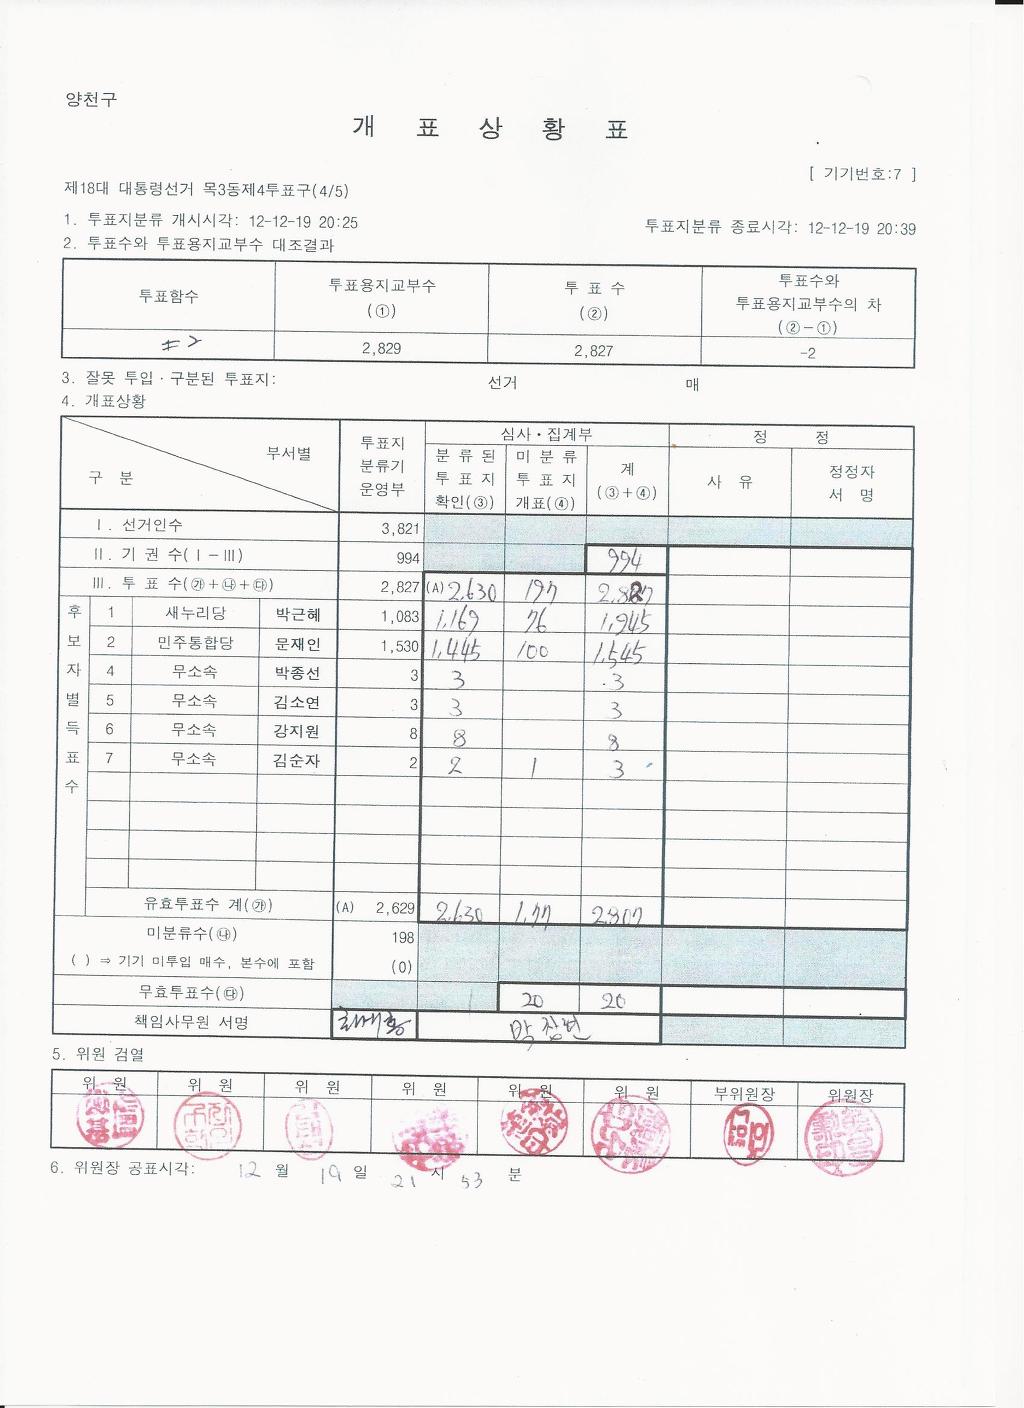 양천구
개 표 상 황 표
[ 기기번호:7 ]
제18대 대통령선거 목3동제4투표구(4/5)
1. 투표지분류 개시시각: 12-12-19 20:25 투표지분류 종료시각: 12-12-19 20:39
2. 투표수와 투표용지교부수 대조결과
투표함수 투표용지교부수 (①) 투 표 수 (②) 투표수와 투표용지교부수의 차 (②-①)
2,829 2,827 -2
3. 잘못 투입·구분된 투표지: 선거 매
4. 개표상황
구 분 부서별 투표지 분류기 운영부 심사·집계부 정 정
분 류 된 투 표 지 확인(③) 미 분 류 투 표 지 개표(④) 계 (③+④) 사 유 정정자 서 명
Ⅰ. 선거인수 3,821
Ⅱ. 기 권 수(Ⅰ-Ⅲ) 994 994
Ⅲ. 투 표 수(㉮+㉯+㉰) 2,827 (A) 2,630 197 2,827
후보자별득표수
1 새누리당 박근혜 1,083 1,169 76 1,945
2 민주통합당 문재인 1,530 1,445 100 1,545
4 무소속 박종선 3 3 3
5 무소속 김소연 3 3 3
6 무소속 강지원 8 8 8
7 무소속 김순자 2 2 1 3
유효투표수 계(㉮) (A) 2,629 2,630 1,77 2,807
미분류수(㉯) 198
( ) ⇒ 기기 미투입 매수, 본수에 포함 (0)
무효투표수(㉰) 20 20
책임사무원 서명
5. 위원 검열
위 원 위 원 위 원 위 원 위 원 위 원 부위원장 위원장
6. 위원장 공표시각: 12 월 19 일 21 시 53 분